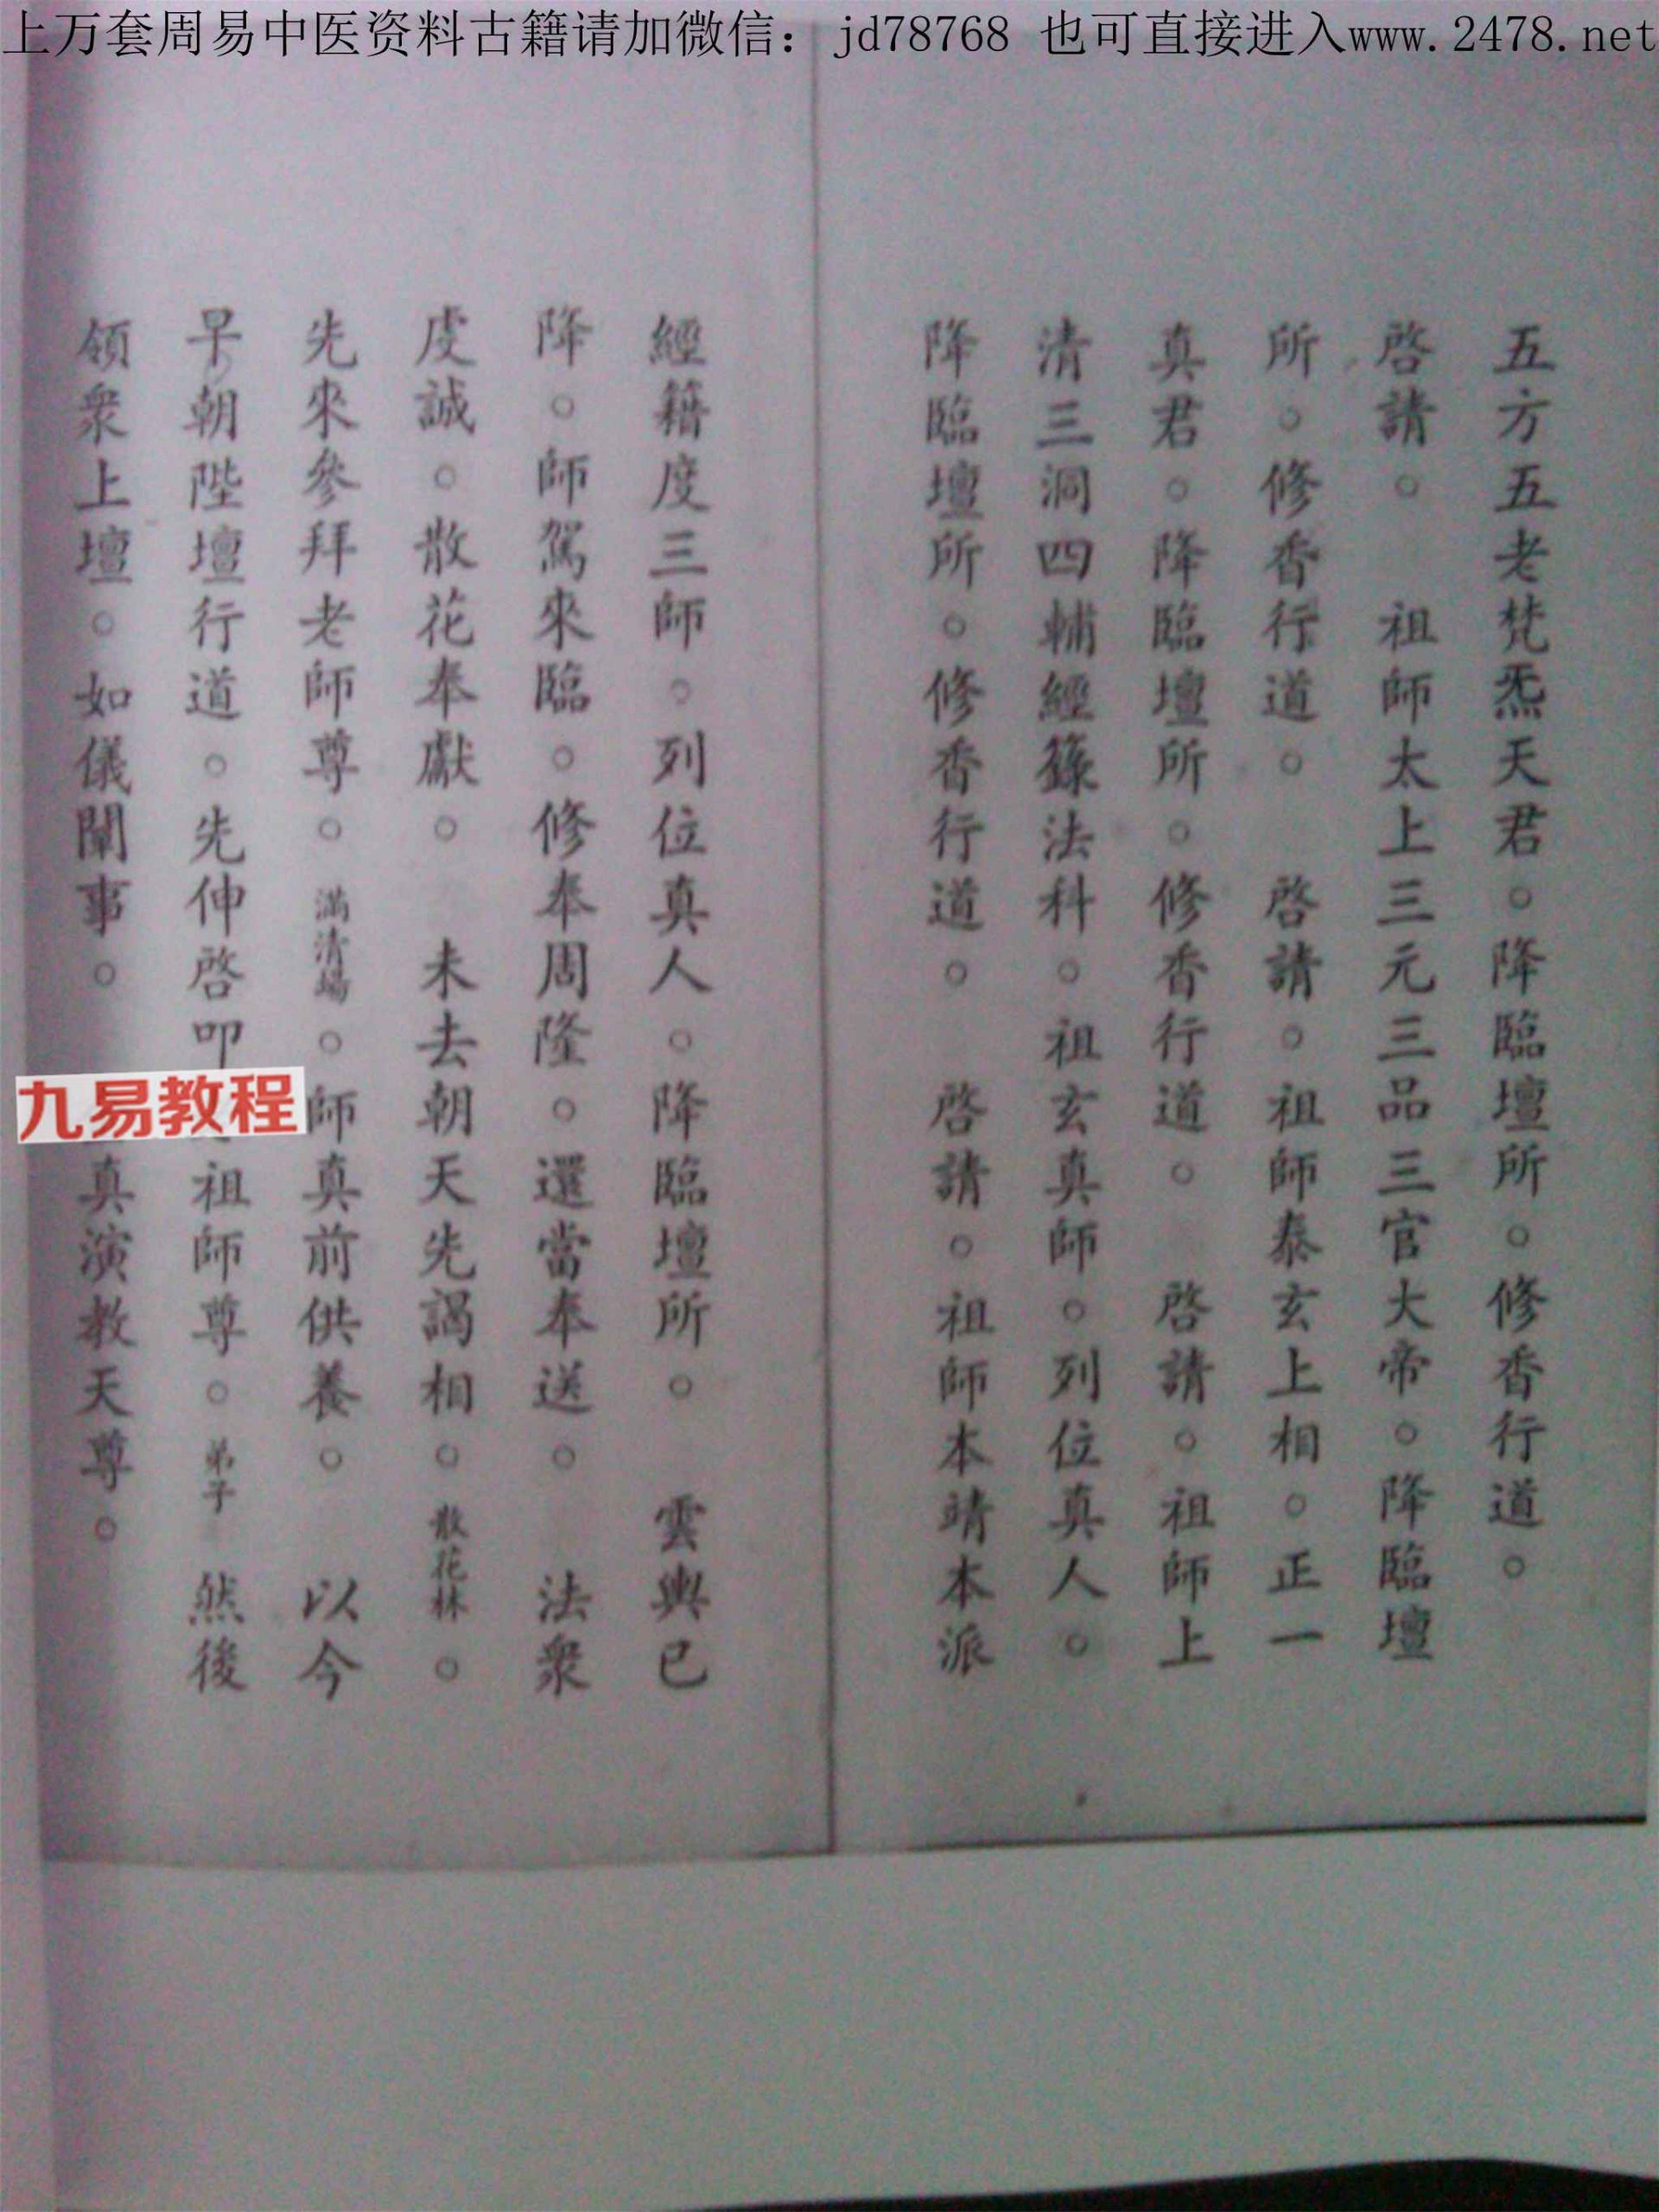 上万套周易中医资料古籍请加微信：jd78768 也可直接进入www.2478.net
五方五老梵炁天君。降臨壇所。修香行道。
啓請。 祖師太上三元三品三官大帝。降臨壇
所。修香行道。 啓請。祖師泰玄上相。正一
真君。降臨壇所。修香行道。 啓請。祖師上
清三洞四輔經籙法科。祖玄真師。列位真人。
降臨壇所。修香行道。 啓請。祖師本靖本派
經籍度三師。列位真人。降臨壇所。 雲輿已
降。師駕來臨。修奉周隆。還當奉送。 法衆
虔誠。散花奉獻。 未去朝天先謁相。散花林。
先來參拜老師尊。滿清場。師真前供養。 以今
早朝陞壇行道。先伸啓叩 祖師尊。弟子 然後
領衆上壇。如儀闡事。 真演教天尊。
九易教程